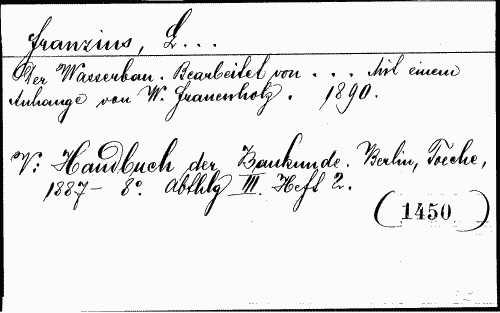 Franzius, L...
Der Wasserbau. Bearbeitet von ... Mit einem
Anhange von W. Frauenholz. 1890.
V: Handbuch der Baukunde. Berlin, Toeche,
1887- 8°. Abthlg III. Heft 2.
(1450)